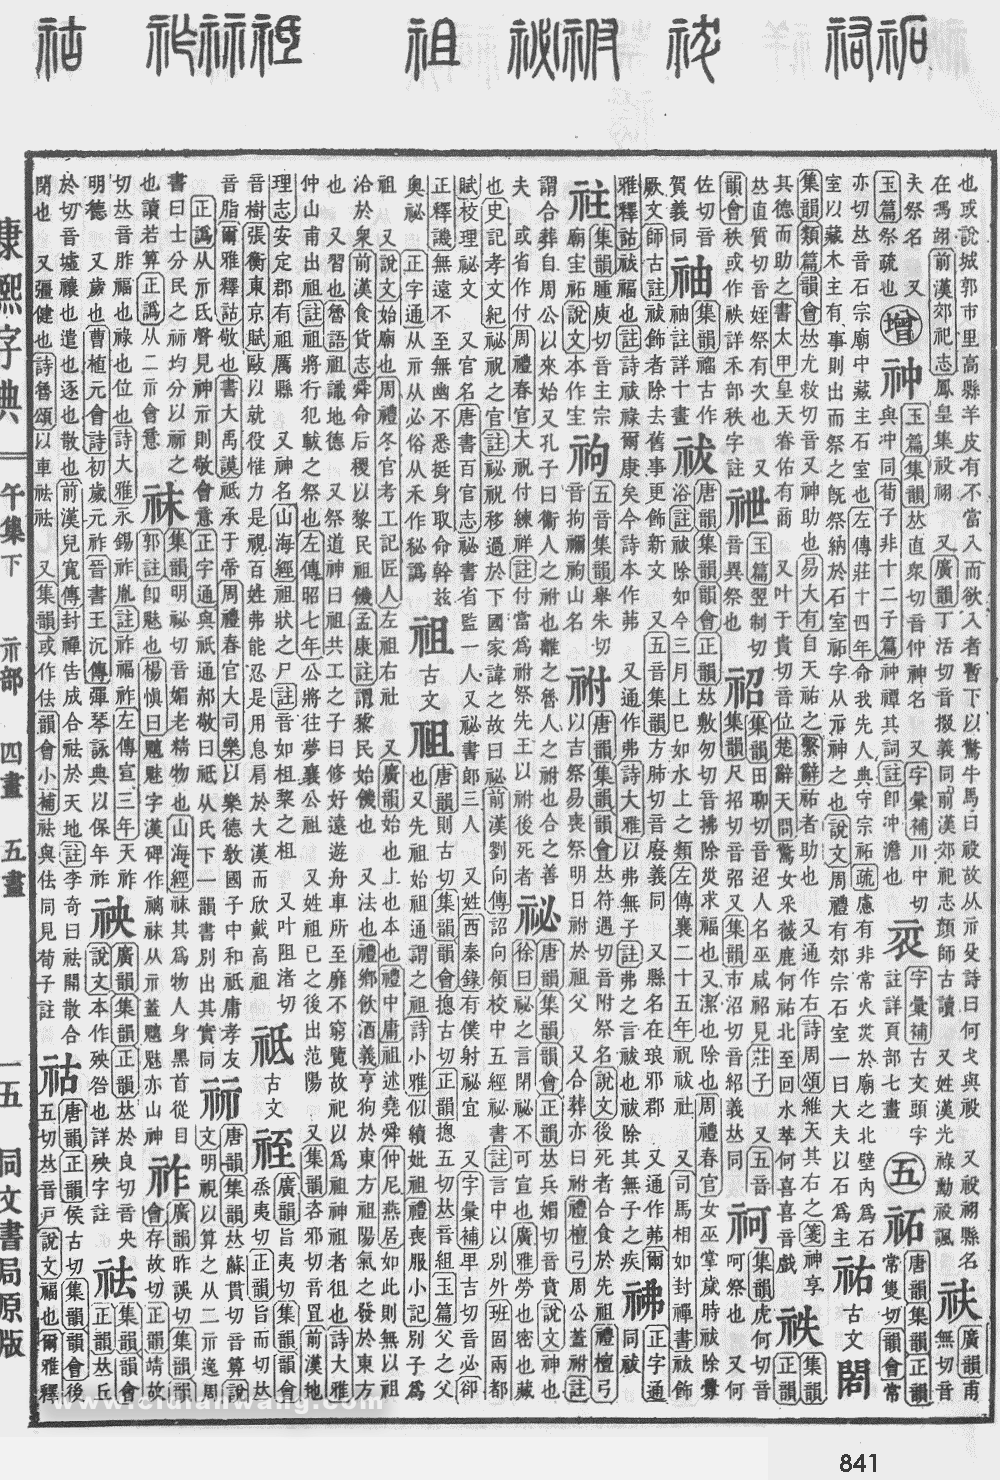 也或說城郭市里高縣羊皮有不當入而欲入者暫下以驚牛馬曰祋故从示殳詩曰何戈與祋 又祋祤縣名
在馮翊前漢郊祀志鳳皇集祋祤 又廣韻丁活切音掇義同前漢郊祀志顏師古讀 又姓漢光祿勳祋諷
廣韻甫
無切音
夫祭名 又
玉篇祭疏也
增
祌
玉篇集韻𠀤直衆切音仲神名 又字彙補川中切
與冲同荀子非十二子篇祌禫其詞註卽冲澹也
字彙補古文頭字
註詳頁部七畫
五
祏
唐韻集韻正韻
常隻切韻會常
亦切𠀤音石宗廟中藏主石室也左傳莊十四年命我先人典守宗祏疏慮有非常火災於廟之北壁內爲石
室以藏木主有事則出而祭之旣祭納於石室祏字从示神之也說文周禮有郊宗石室一曰大夫以石爲主
祐
古文
集韻類篇韻會𠀤尤救切音又神助也易大有自天祐之繫辭祐者助也 又通作右詩周頌維天其右之箋神享
其德而助之書太甲皇天眷佑有商 又叶于貴切音位楚辭天問驚女采薇鹿何祐北至回水萃何喜喜音戲
祑
集韻
正韻
𠀤直質切音姪祭有次也 又
韻會秩或作祑詳禾部秩字註
玉篇翌制切
音異祭也
祒
集韻田聊切音迢人名巫咸祒見莊子 又五音
集韻尺招切音弨又集韻市沼切音紹義𠀤同
集韻虎何切音
呵祭也 又何
佐切音
賀義同
集韻古作
註詳十畫
祓
唐韻集韻韻會正韻𠀤敷勿切音拂除災求福也又潔也除也周禮春官女巫掌歲時祓除釁
浴註祓除如今三月上巳如水上之類左傳襄二十五年祝祓社 又司馬相如封禪書祓飾
厥文師古註祓飾者除去舊事更飾新文 又五音集韻方肺切音廢義同 又縣名在琅邪郡 又通作茀爾
雅釋詁祓福也註詩祓祿爾康矣今詩本作茀 又通作弗詩大雅以弗無子註弗之言祓也祓除其無子之疾
正字通
同祓
集韻腫庾切音主宗
廟宔祏說文本作宔
五音集韻舉朱切
音拘禰山名
祔
唐韻集韻韻會𠀤符遇切音附祭名說文後死者合食於先祖禮檀弓
以吉祭易喪祭明日祔於祖父 又合葬亦曰祔禮檀弓周公蓋祔註
謂合葬自周公以來始又孔子曰衞人之祔也離之魯人之祔也合之善
夫 或省作付周禮春官大祝付練祥註付當爲祔祭先王以祔後死者
祕
唐韻集韻韻會正韻𠀤兵媚切音賁說文神也
徐曰祕之言閉祕不可宣也廣雅勞也密也藏
也史記孝文紀祕祝之官註祕祝移過於下國家諱之故曰祕前漢劉向傳詔向領校中五經祕書註言中以別外班固兩都
賦校理祕文 又官名唐書百官志祕書省監一人又祕書郎三人 又姓西秦錄有僕射祕宜 又字彙補卑吉切音必卻
正釋譏無遠不至無幽不悉挺身取命幹茲
奧祕 正字通从示从必俗从禾作秘譌
祖
古文
唐韻則古切集韻韻會摠古切正韻摠五切𠀤音組玉篇父之父
也又先祖始祖通謂之祖詩小雅似續妣祖禮喪服小記別子爲
祖 又說文始廟也周禮冬官考工記匠人左祖右社 又廣韻始也上也本也禮中庸祖述堯舜仲尼燕居如此則無以祖
洽於衆前漢食貨志舜命后稷以黎民祖饑孟康註謂黎民始饑也 又法也禮鄉飲酒義亨狗於東方祖陽氣之發於東方
也 又習也魯語祖識地德 又祭道神曰祖共工之子曰修好遠遊舟車所至靡不窮覽故祀以爲祖神祖者徂也詩大雅
仲山甫出祖註祖將行犯軷之祭也左傳昭七年公將往夢襄公祖 又姓祖己之後出范陽 又集韻咨邪切音罝前漢地
理志安定郡有祖厲縣 又神名山海經祖狀之尸註音如柤棃之柤 又叶阻渚切
音樹張衡東京賦敺以就役惟力是視百姓弗能忍是用息肩於大漢而欣戴高祖
祗
古文
廣韻旨夷切集韻韻會
烝夷切正韻旨而切𠀤
音脂爾雅釋詁敬也書大禹謨祗承于帝周禮春官大司樂以樂德敎國子中和祗庸孝友
正譌从示氏聲見神示則敬會意正字通與祇通郝敬曰祇从氏下一韻書別出其實同
祘
唐韻集韻𠀤蘇貫切音算說
文明視以算之从二示逸周
書曰士分民之祘均分以祘之
也讀若算正譌从二示會意
集韻明祕切音媚老精物也山海經祙其爲物人身黑首從目
郭註卽魅也楊愼曰魑魅字漢碑作禲祙从示蓋魑魅亦山神
祚
廣韻昨誤切集韻韻
會存故切正韻靖故
切𠀤音胙福也祿也位也詩大雅永錫祚胤註祚福祚左傳宣三年天祚
明德 又歲也曹植元會詩初歲元祚晉書王沉傳彈琴詠典以保年祚
廣韻集韻正韻𠀤於良切音央
說文本作殃咎也詳殃字註
祛
集韻韻會
正韻𠀤丘
於切音墟禳也遣也逐也散也前漢兒寬傳封禪吿成合祛於天地註李奇曰祛開散合
閉也 又彊健也詩魯頌以車祛祛 又集韻或作佉韻會小補祛與佉同見荀子註
祜
唐韻正韻侯古切集韻韻會後
五切𠀤音戸說文福也爾雅釋
康熙字典
午集下 示部 四畫 五畫
一五
同文書局原版
841